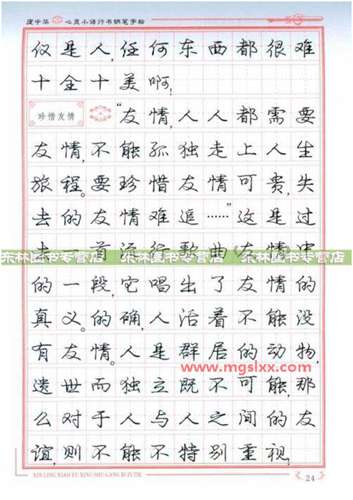 庞中华 心灵小语行书钢笔字帖
仅是人,任何东西都很难
十全十美啊!
珍惜友情 “友情,人人都需要
友情,不能孤独走上人生
旅程。要珍惜友情可贵,失
去的友情难追……”这是过
去一首流行歌曲《友情》中
东林图书专营店 东林图书专营店 东林图书专营店
的一段,它唱出了友情的
真义。的确,人活着不能没
有友情。人是群居的动物,
www.mgslxx.com
遗世而独立既不可能,那
么对于人与人之间的友
谊,则不能不特别重视,
24